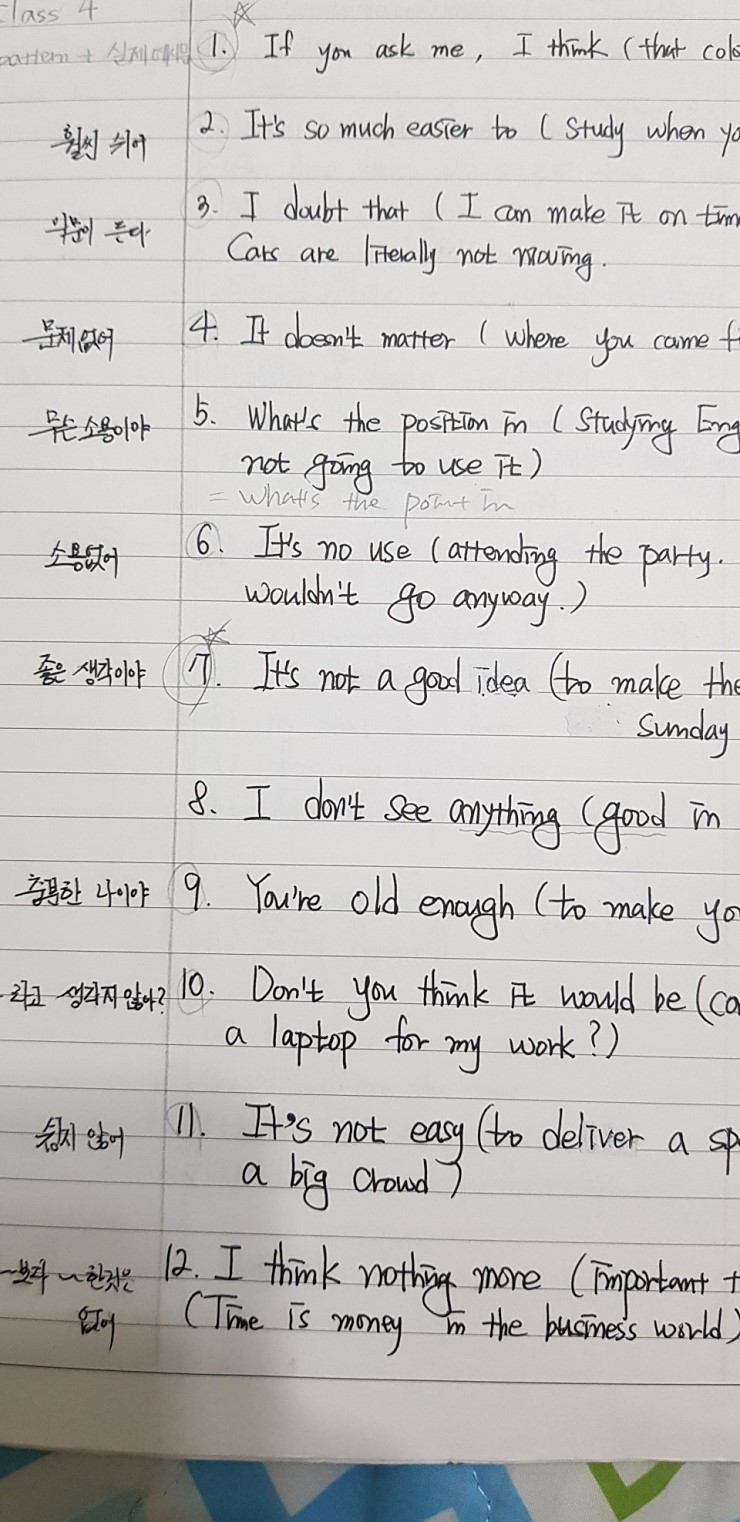 Class 4
pattern + 실제대화 1. If you ask me, I think (that colo
훨씬 쉬어 2. It's so much easier to (study when yo
의문이 든다 3. I doubt that (I can make it on tim
Cars are literally not moving.
문제없어 4. It doesn't matter (where you came f
무슨 소용이야 5. What's the position in (studying Eng
not going to use it)
= what's the point in
소용없어 6. It's no use (attending the party.
wouldn't go anyway.)
좋은 생각이야 7. It's not a good idea (to make the
Sunday
8. I don't see anything (good in
충분한 나이야 9. You're old enough (to make yo
라고 생각지 않아? 10. Don't you think it would be (ca
a laptop for my work?)
쉽지 않어 11. It's not easy (to deliver a sp
a big crowd)
~보다 ~한것은 12. I think nothing more (important t
없어 (Time is money in the business world)